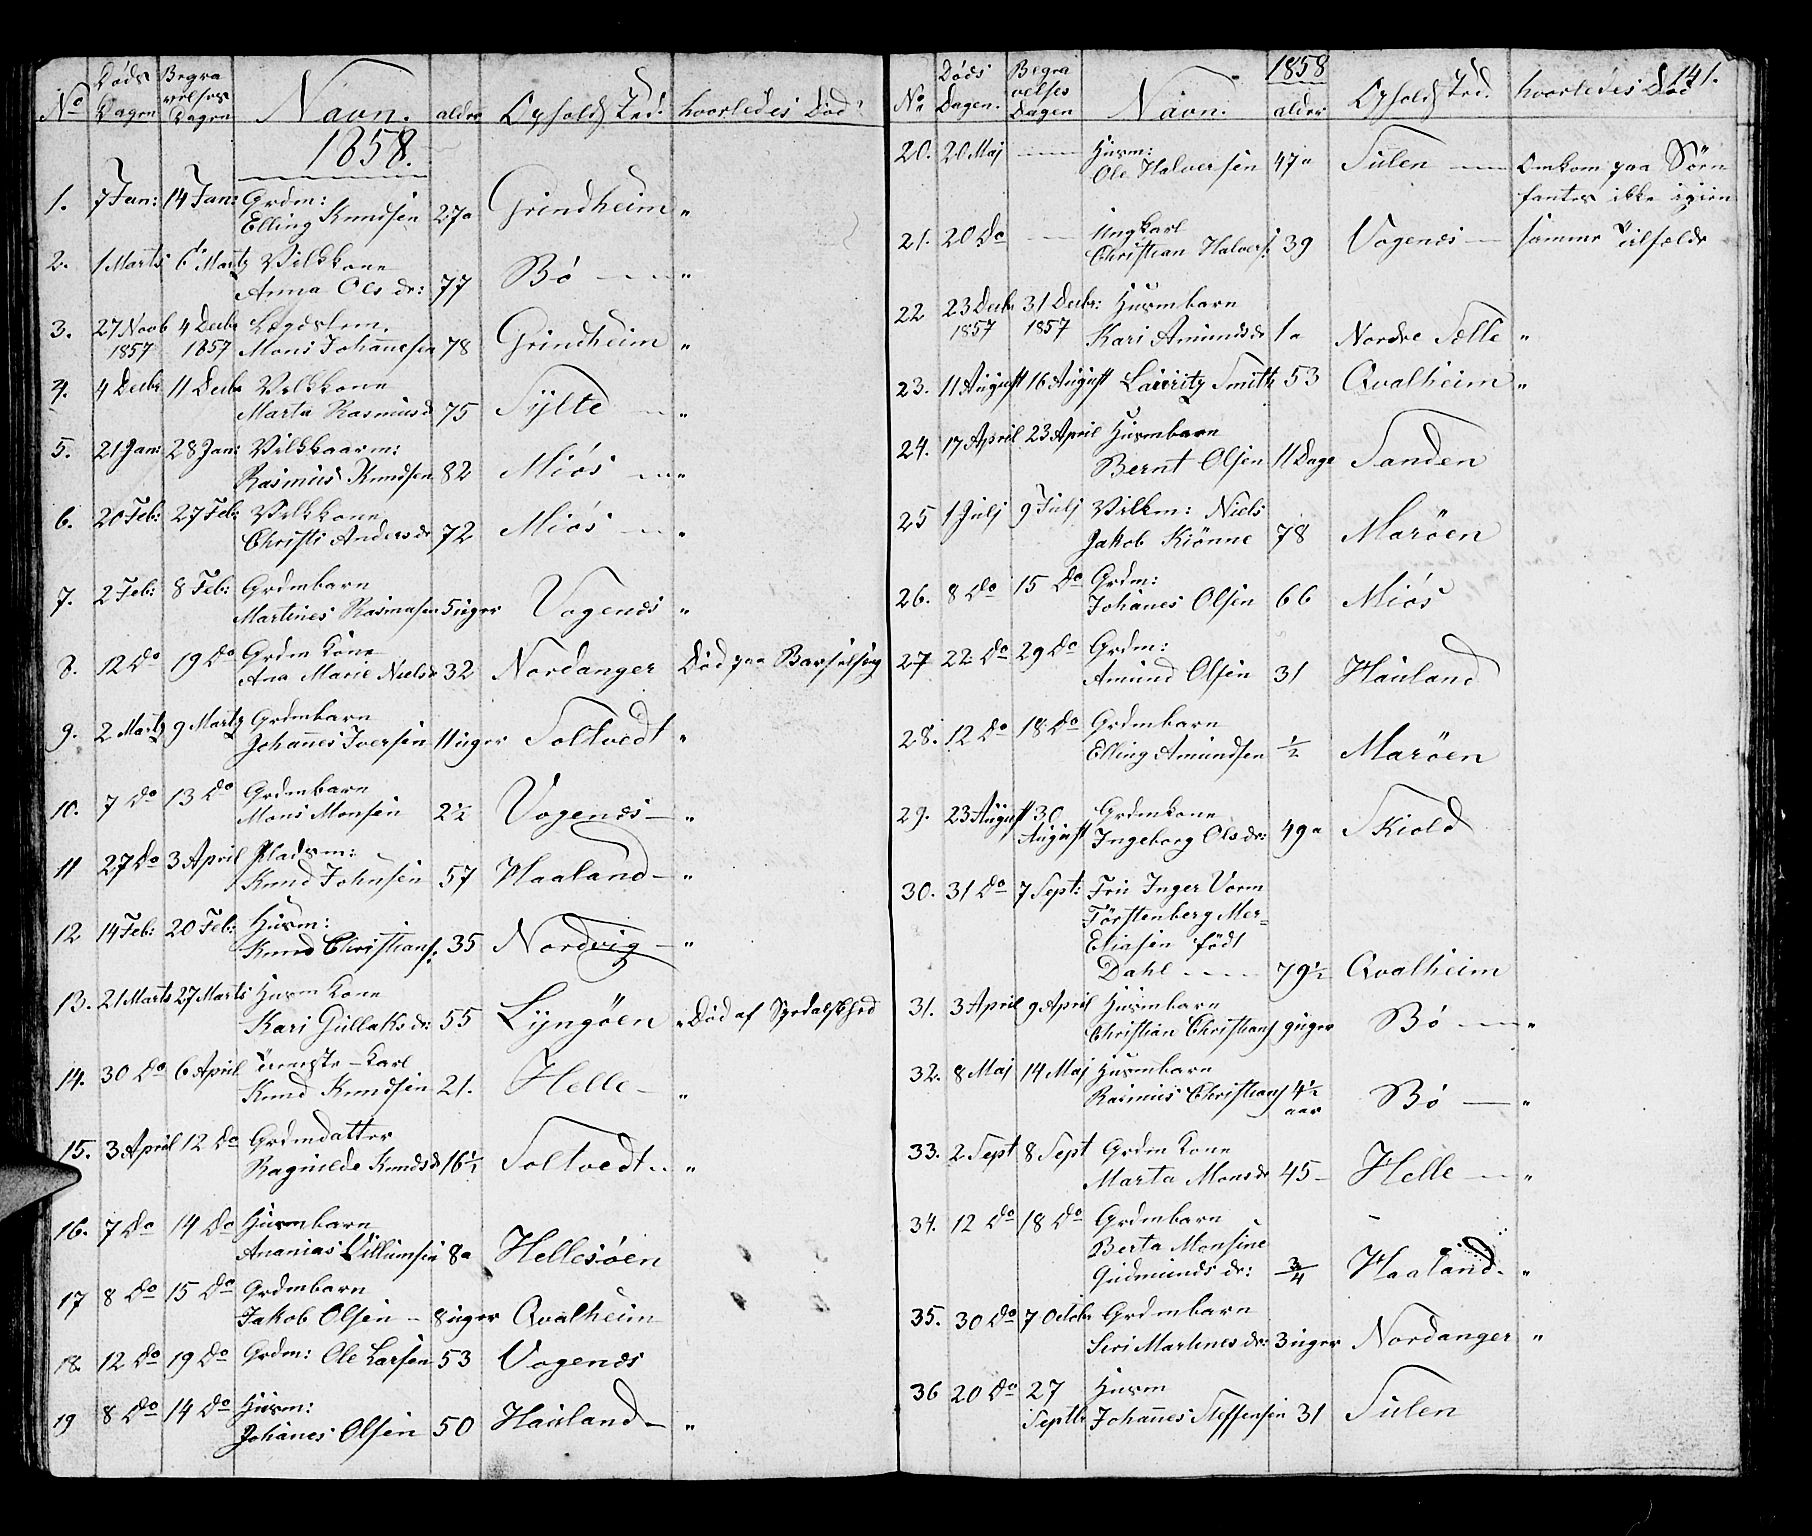 No Døds Dagen Begravelses Dagen Navn. alder Opholds Sted. hvorledes Død
1858.
1. 7 Jan: 14 Jan: Grdm:
Elling Knudsen 27a Grindheim "
2. 1 Marts 6te Martz Vilkkone
Anna Ols dr: 77 Bø "
3. 27 Novb 4 Decbr Lægdslem.
1857 1857 Mons Johannesen 78 Grindheim "
4. 4 Decbr 11 Decbr Vilkkone
Marta Rasmusd 75 Sylte "
5. 21 Jan: 28 Jan: Vilkkaarm:
Rasmus Knudsen 82 Miøs "
6. 20 Feb: 27 Feb: Vilkkone
Christi Anders dr 72 Miøs "
7. 2 Feb: 8 Feb: Grdmbarn
Martines Rasmusen 5 uger Vogenæs "
8. 12 Do 19 Do Grdm Kone
Ana Marie Nielsd 32 Nordanger Død paa Barselseng
9. 2 Martz 9 Martz Grdmbarn
Johannes Iversen 11 uger Soltvedt "
10. 7 do 13 do Grdmbarn
Mons Monsen 2½ Vogenæs "
11 27 Do 3 April Pladsm:
Knud Johnsen 57 Haaland "
12 14 Feb: 20 Feb: Husm:
Knud Christians: 35 Nordvig "
13. 21 Marts 27 Marts Husm Kone
Kari Gullaks dr: 55 Lyngøen " Død af Spedalskhed
14. 30 Do 6 April Tieneste-Karl
Knud Knudsen 21. Helle "
15. 3 April 12 Do Grdmdatter
Ragnilde Knudsd 16½ Soltvedt "
16. 7 Do 14 Do Husmbarn
Ananias Villumsen 8a Hellesøen
17 8 Do 15 Do Grdmbarn
Jakob Olsen 8 uger Qvalheim
18. 12 Do 19 Do Grdm: Ole Larsen 53 Vogenæs
19 8 Do 14 Do Husm:
Johanes Olsen 50 Hauland "
No Døds Dagen. Begravelses Dagen Navn. 1858 alder Opholds Sted. hvorledes Død 141.
20. 20 Maj Husm:
Ole Halversen 47a Sulen Omkom paa Søen
fantes ikke igien
21. 20 Do Ungkarl
Christian Halvers: 39 Vogenæs samme Tilfælde
22 23 Decbr 31 Decbr: Husmbarn
1857 1857 Kari Amundsdr 1a Nordre Sælle "
23. 11 August 16 August Lauritz Smith 53 Qvalheim "
24. 17 April 23 April Husmbarn
Bernt Olsen 11 Dage Sanden
25 1 Julj 9 Julj Vilkm: Niels
Jakob Kiønne 78 Marøen
26. 8 Do 15 Do Grdm:
Johanes Olsen 66 Miøs
27 22 Do 29 Do Grdm:
Amund Olsen 31 Hauland
28. 12 Do 18 Do Grdmbarn
Elling Amundsen ½ Marøen
29. 23 August 30 August Grdmkone
Ingeborg Ols dr: 49a Skiold
30. 31 Do 7 Sept: Fru Inger Vorm
Førstenberg Mer=
Eliasen født
Dahl 79½ Qvalheim
31. 3 April 9 April Husmbarn
Christian Christians 9 uger Bø "
32. 8 Maj 14 Maj Husmbarn
Rasmus Christians 4½ aar Bø "
33. 2 Sept 8 Sept Grdm Kone
Marta Monsdr 45 Helle "
34. 12 Do 18 Do Grdmbarn
Berta Monsine
Gudmunds dr: ¾ Haaland "
35. 30 Do 7 Octobr Grdmbarn
Siri Martines dr: 3 uger Nordanger "
36 20 Do 27 Septbr Husm
Johannes Steffensen 31 Sulen